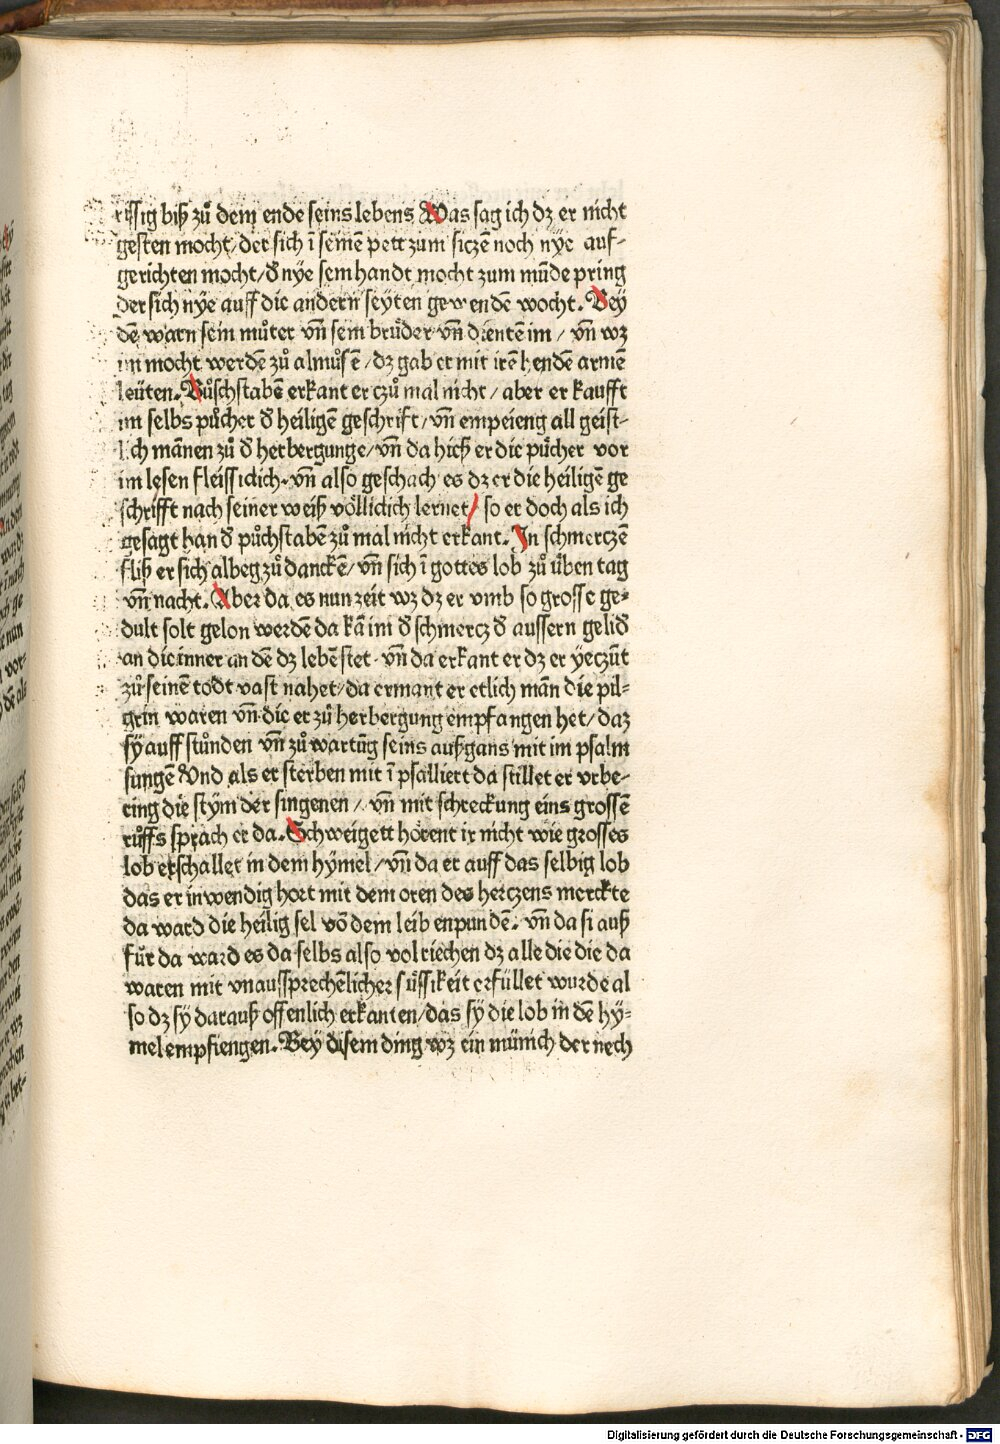 rissig biß zů dem ende seins lebens Was sag ich dz er nicht
gesten mocht/der sich ī seinem pett zum siczē noch nye auf-
gerichten mocht/ď nye sein handt mocht zum mūde pring
der sich nye auff die andern seyten gewenden wocht. Bey
dē warn sein můter vn̄ sein brůder vn̄ dientē im/ vn̄ wz
im mocht werdē zů almůsē/dz gab er mit irē hendē armē
leüten. Bůchstabē erkant er czů mal nicht/aber er kaufft
im selbs půcher ď heiligē geschrift/vn̄ empfieng all geist-
lich mānen zů ď herbergunge/vn̄ da hieß er die půcher vor
im lesen fleissiclich. vn̄ also geschach es dz er die heiligē ge
schrifft nach seiner weiß völliclich lernet/ so er doch als ich
gesagt han ď půchstabē zů mal nicht erkant. In schmerczē
fliß er sich albeg zů danckē/vn̄ sich ī gottes lob zů üben tag
vn̄ nacht. Aber da es nun zeit wz dz er vmb so grosse ge-
dult solt gelon werdē da kā im ď schmercz ď aussern gelid
an die inner an dē dz lebē stet. vn̄ da erkant er dz er yeczūt
zů seinē todt vast nahet/da ermant er etlich mān die pil-
grin waren vn̄ die er zů herbergung empfangen het/daz
sy auff stůnden vn̄ zů wartūg seins außgans mit im psalm
sungē Und als er sterben mit ī psalliert da stillet er vrbe-
ring die stym der singenen/ vn̄ mit schreckung eins grossē
růffs sprach er da. Schweigett hörent ir nicht wie grosses
lob erschallet in dem hymel/vn̄ da er auff das selbig lob
das er inwendig hort mit dem oren des herczens merckte
da ward die heilig sel vō dem leib enpundē. vn̄ da si auß
fůr da ward es da selbs also vol riechen dz alle die die da
waren mit vnaussprechēlicher sůssikeit erfüllet wurde al
so dz sy darauß offenlich erkanten/das sy die lob in dē hy-
mel empfiengen. Bey disem ding wz ein münich der nech
Digitalisierung gefördert durch die Deutsche Forschungsgemeinschaft - DFG